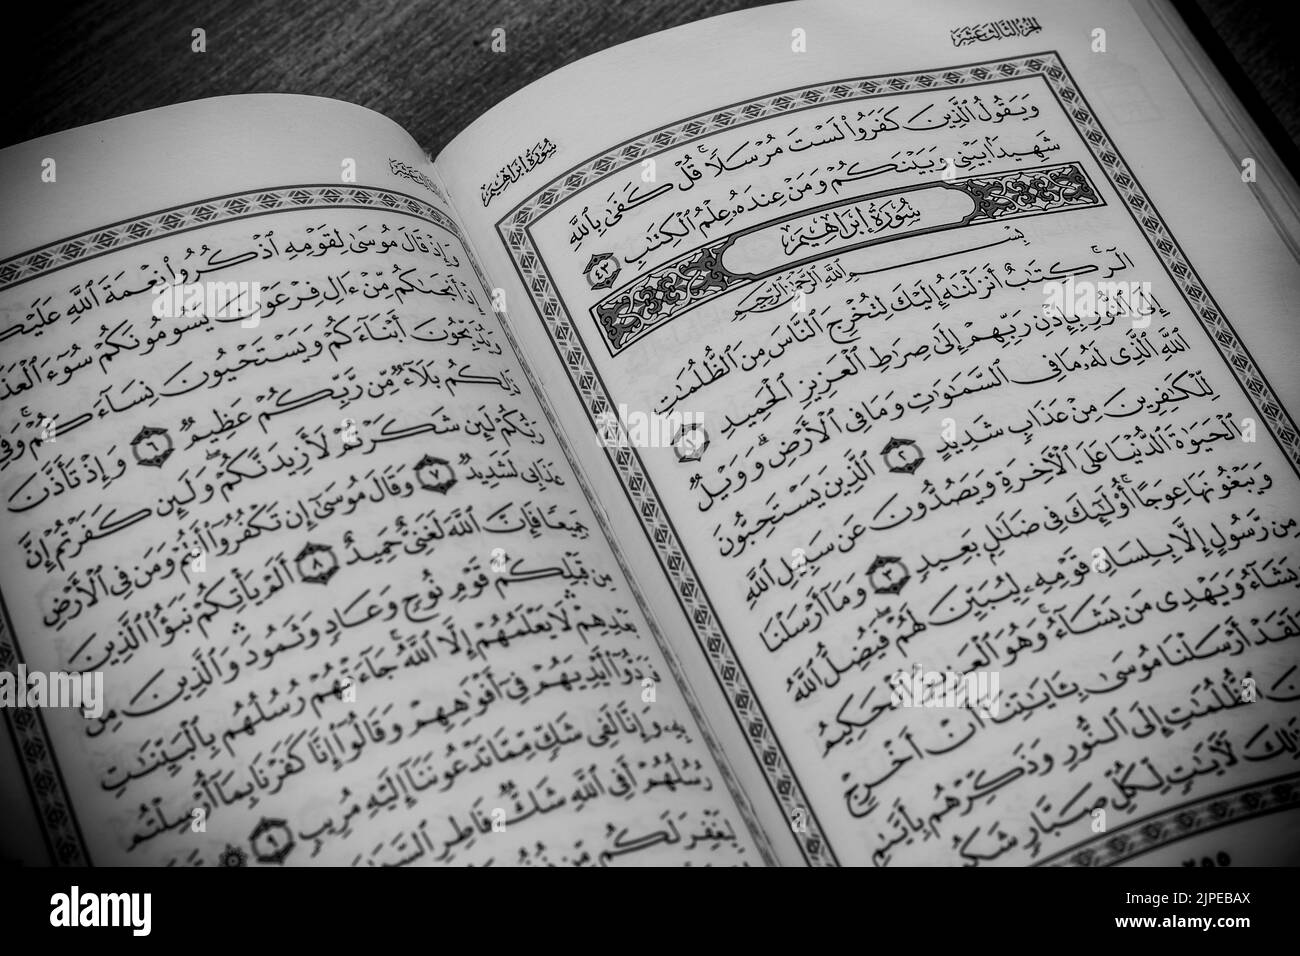 الجزء الثالث عشر
سورة إبراهيم
وَيَقُولُ ٱلَّذِينَ كَفَرُوا۟ لَسْتَ مُرْسَلًا ۚ قُلْ كَفَىٰ بِٱللَّهِ
شَهِيدًۢا بَيْنِى وَبَيْنَكُمْ وَمَنْ عِندَهُۥ عِلْمُ ٱلْكِتَٰبِ ٤٣
سُورَةُ إِبْرَاهِيمَ
بِسْمِ ٱللَّهِ ٱلرَّحْمَٰنِ ٱلرَّحِيمِ
الٓر ۚ كِتَٰبٌ أَنزَلْنَٰهُ إِلَيْكَ لِتُخْرِجَ ٱلنَّاسَ مِنَ ٱلظُّلُمَٰتِ
إِلَى ٱلنُّورِ بِإِذْنِ رَبِّهِمْ إِلَىٰ صِرَٰطِ ٱلْعَزِيزِ ٱلْحَمِيدِ ١
ٱللَّهِ ٱلَّذِى لَهُۥ مَا فِى ٱلسَّمَٰوَٰتِ وَمَا فِى ٱلْأَرْضِ ۗ وَوَيْلٌ
لِّلْكَٰفِرِينَ مِنْ عَذَابٍ شَدِيدٍ ٢ ٱلَّذِينَ يَسْتَحِبُّونَ
ٱلْحَيَوٰةَ ٱلدُّنْيَا عَلَى ٱلْءَاخِرَةِ وَيَصُدُّونَ عَن سَبِيلِ ٱللَّهِ
وَيَبْغُونَهَا عِوَجًا ۚ أُو۟لَٰٓئِكَ فِى ضَلَٰلٍۭ بَعِيدٍ ٣ وَمَآ أَرْسَلْنَا
مِن رَّسُولٍ إِلَّا بِلِسَانِ قَوْمِهِۦ لِيُبَيِّنَ لَهُمْ ۖ فَيُضِلُّ ٱللَّهُ
يَشَآءُ وَيَهْدِى مَن يَشَآءُ ۚ وَهُوَ ٱلْعَزِيزُ ٱلْحَكِيمُ
أَرْسَلْنَا مُوسَىٰ بِـَٔايَٰتِنَآ أَنْ أَخْرِجْ
ٱلظُّلُمَٰتِ إِلَى ٱلنُّورِ وَذَكِّرْهُم بِأَيَّىٰمِ
لَءَايَٰتٍ لِّكُلِّ صَبَّارٍ شَكُورٍ
٢٥٥
وَإِذْ قَالَ مُوسَىٰ لِقَوْمِهِ ٱذْكُرُوا۟ نِعْمَةَ ٱللَّهِ
إِذْ أَنجَىٰكُم مِّنْ ءَالِ فِرْعَوْنَ يَسُومُونَكُمْ سُوٓءَ
وَيُذَبِّحُونَ أَبْنَآءَكُمْ وَيَسْتَحْيُونَ نِسَآءَكُمْ ۚ وَفِى
ذَٰلِكُم بَلَآءٌ مِّن رَّبِّكُمْ عَظِيمٌ ٦ وَإِذْ تَأَذَّنَ
رَبُّكُمْ لَئِن شَكَرْتُمْ لَأَزِيدَنَّكُمْ ۖ وَلَئِن كَفَرْتُمْ إِنَّ
عَذَابِى لَشَدِيدٌ ٧ وَقَالَ مُوسَىٰٓ إِن تَكْفُرُوٓا۟ أَنتُمْ وَمَن فِى ٱلْأَرْضِ
جَمِيعًا فَإِنَّ ٱللَّهَ لَغَنِىٌّ حَمِيدٌ ٨ أَلَمْ يَأْتِكُمْ نَبَؤُا۟ ٱلَّذِينَ
مِن قَبْلِكُمْ قَوْمِ نُوحٍ وَعَادٍ وَثَمُودَ ۛ وَٱلَّذِينَ مِنۢ
بَعْدِهِمْ ۛ لَا يَعْلَمُهُمْ إِلَّا ٱللَّهُ ۚ جَآءَتْهُمْ رُسُلُهُم بِٱلْبَيِّنَٰتِ
فَرَدُّوٓا۟ أَيْدِيَهُمْ فِىٓ أَفْوَٰهِهِمْ وَقَالُوٓا۟ إِنَّا كَفَرْنَا بِمَآ أُرْسِلْتُم
بِهِۦ وَإِنَّا لَفِى شَكٍّ مِّمَّا تَدْعُونَنَآ إِلَيْهِ مُرِيبٍ ٩
رُسُلُهُمْ أَفِى ٱللَّهِ شَكٌّ فَاطِرِ
لِيَغْفِرَ لَكُم مِّن
alamy
Image ID: 2JPEBAX
www.alamy.com